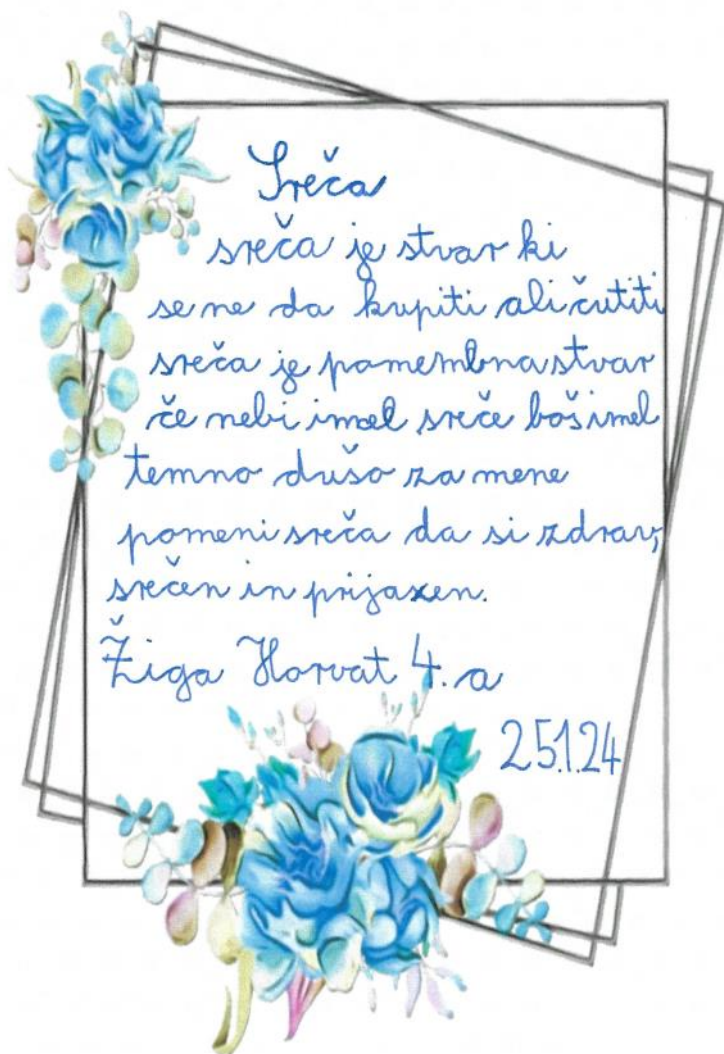 Sreča
sreča je stvar ki
se ne da kupiti ali čutiti
sreča je pomembna stvar
če nebi imel sreče boš imel
temno dušo za mene
pomeni sreča da si zdrav,
srečen in prijazen.
Žiga Horvat 4. a
25.1.24